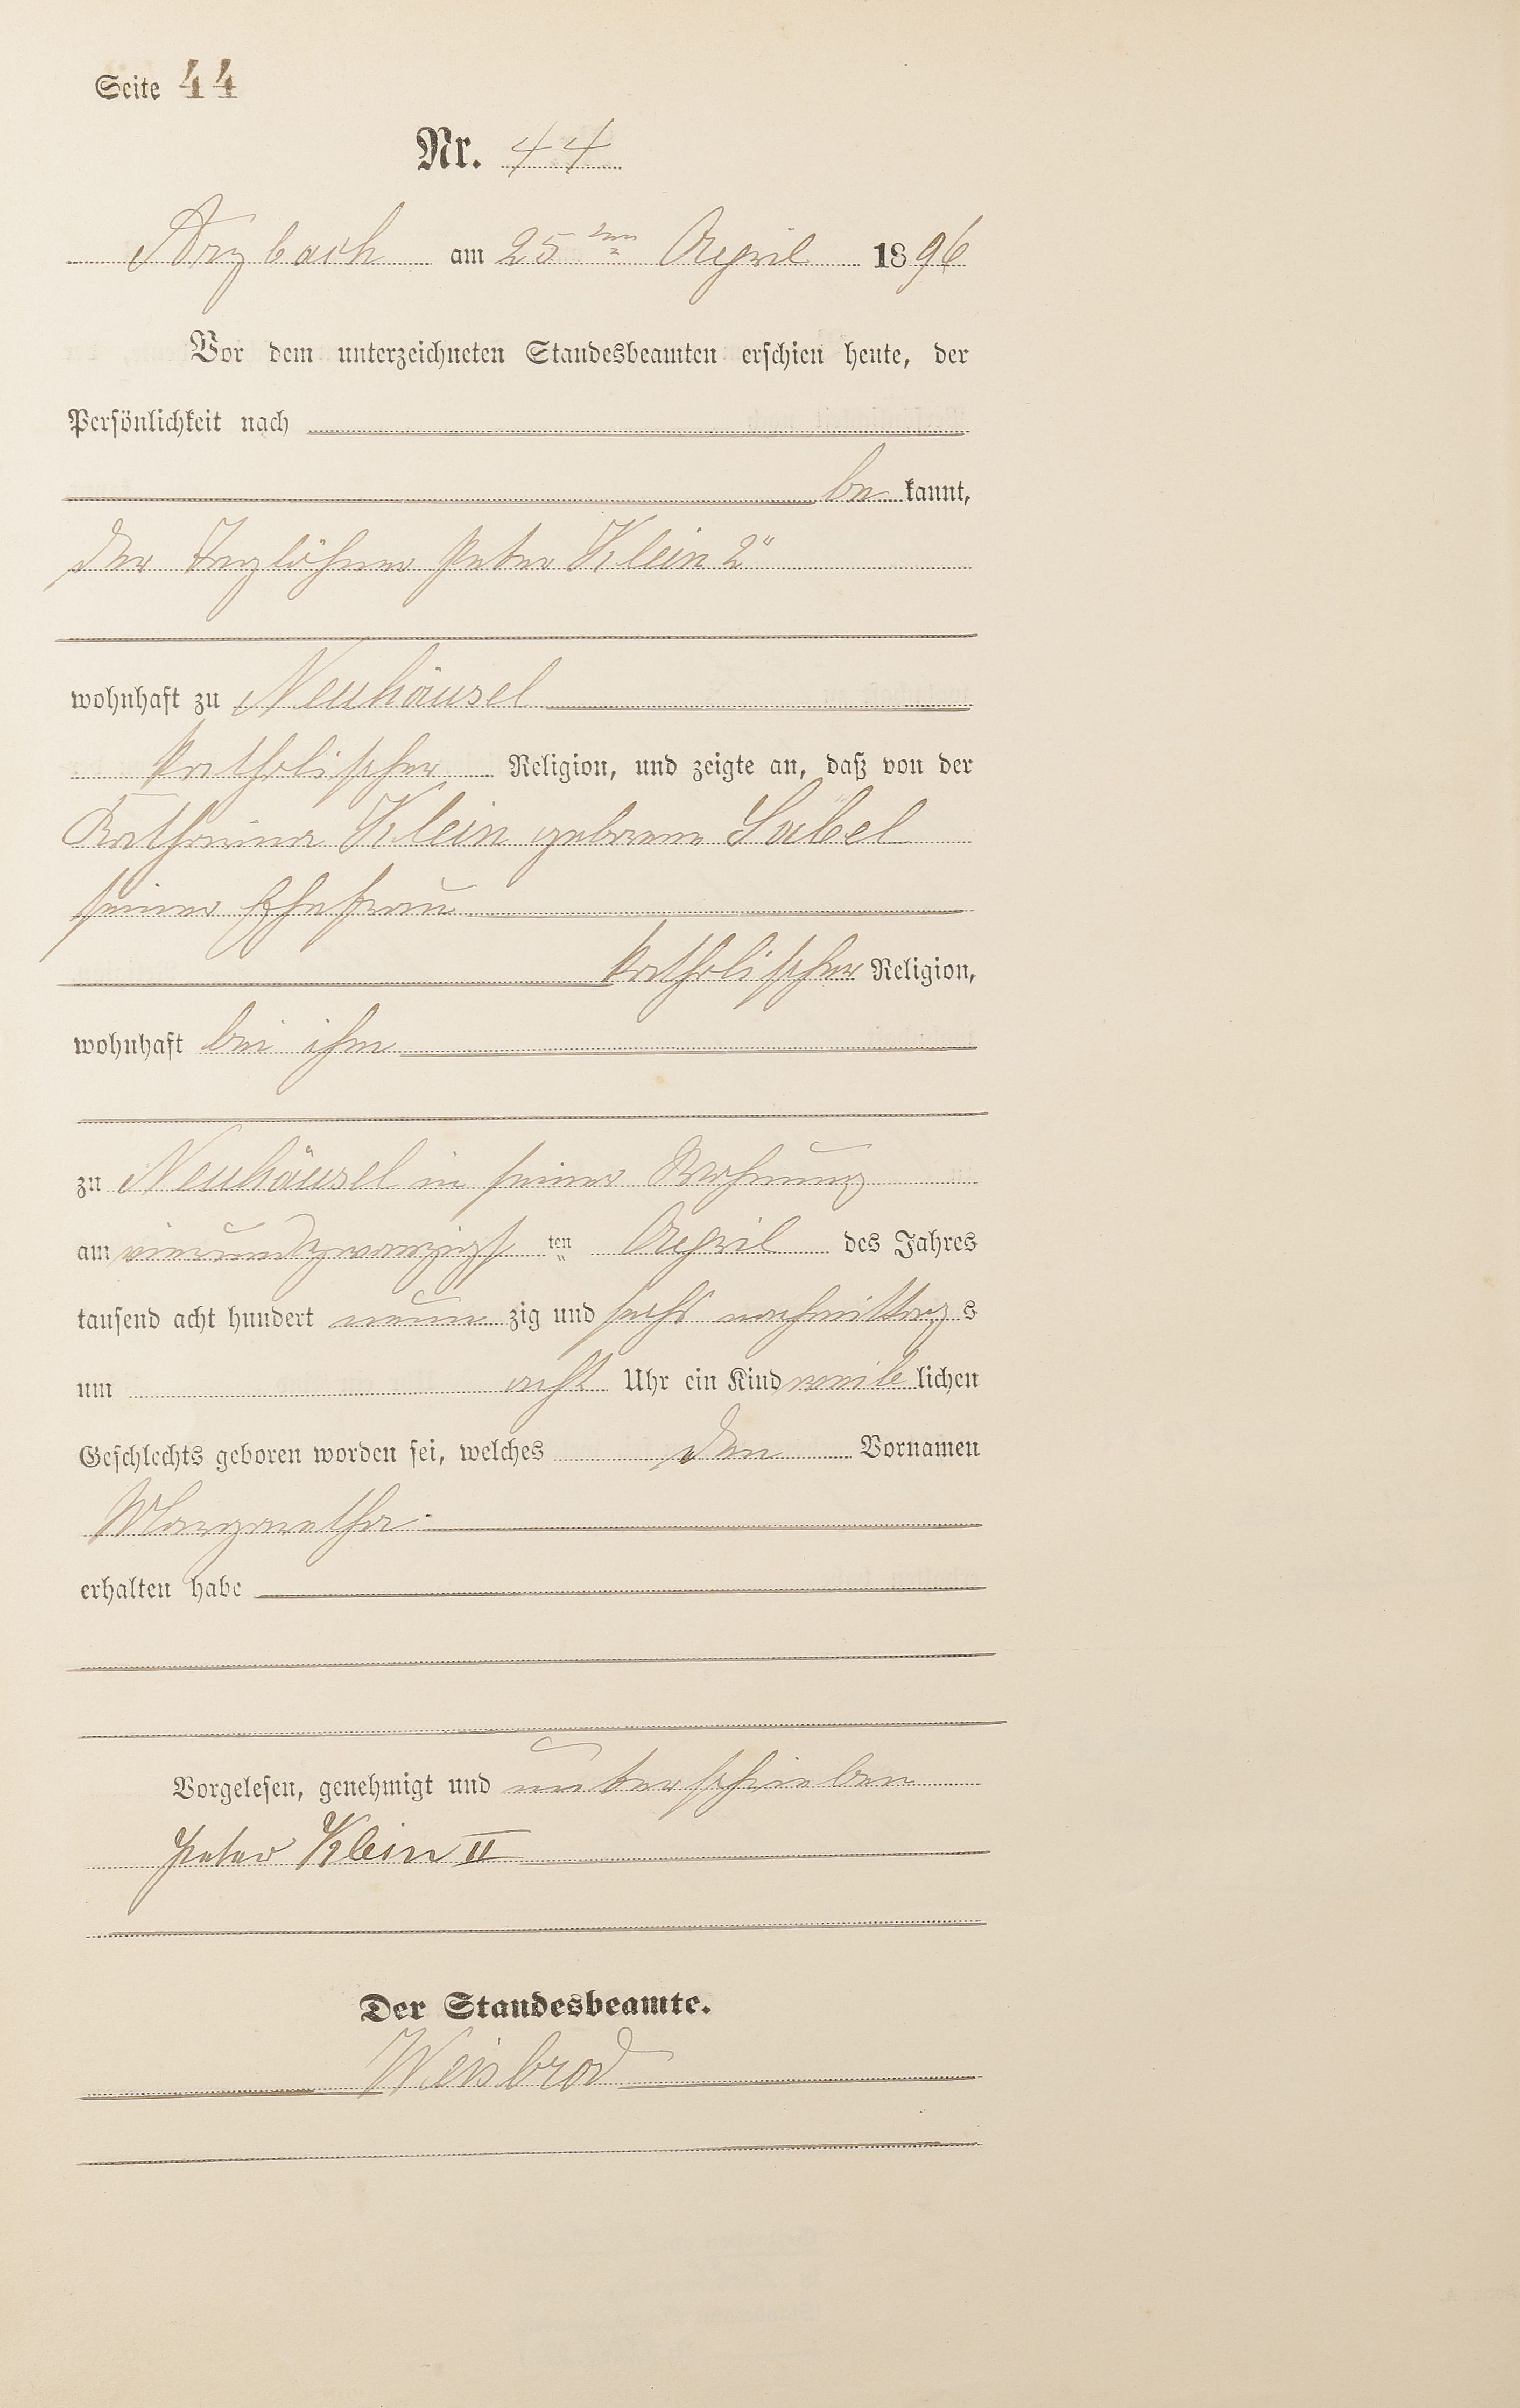 Seite 44
Nr. 44
Arzbach am 25ten April 1896
Vor dem unterzeichneten Standesbeamten erschien heute, der
Persönlichkeit nach
bekannt,
der Taglöhner Peter Klein 2"
wohnhaft zu Neuhäusel
katholischer Religion, und zeigte an, daß von der
Katharina Klein geborene Sabel
seiner Ehefrau
katholischer Religion,
wohnhaft bei ihm
zu Neuhäusel in seiner Wohnung
am vierundzwanzigsten April des Jahres
tausend acht hundert neunzig und sechs nachmittags
um acht Uhr ein Kind weiblichen
Geschlechts geboren worden sei, welches den Vornamen
Margaretha
erhalten habe
Vorgelesen, genehmigt und unterschrieben
Peter Klein II
Der Standesbeamte.
Weisbrod